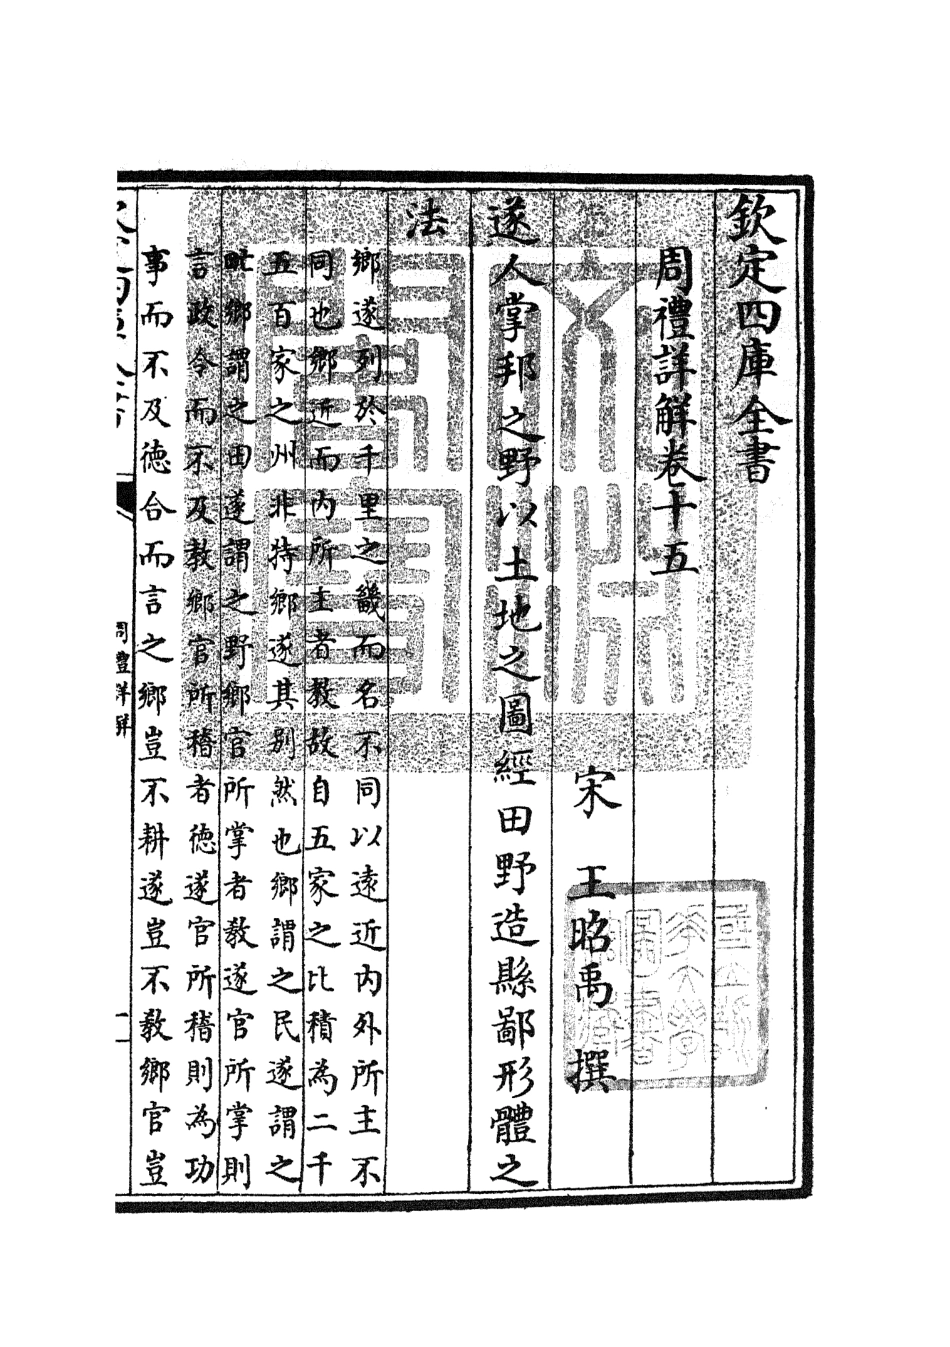 欽定四庫全書
周禮詳解卷十五
宋 王昭禹 撰
遂人掌邦之野以土地之圖經田野造縣鄙形體之
法
鄉遂列於千里之畿而名不同以遠近内外所主不
同也鄉近而内所主者教故自五家之比積為二千
五百家之州非特鄉遂其别然也鄉謂之民遂謂之
甿鄉謂之田遂謂之野鄉官所掌者教遂官所掌則
言政令而不及教鄉官所稽者徳遂官所稽則為功
事而不及徳合而言之鄉豈不耕遂豈不教鄉官豈
周禮詳解